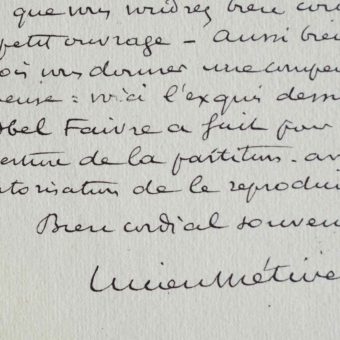 que vous voudrez bien cons
petit ouvrage - Aussi bien
ois vous donner une compen
euse : voici l'exquis dessi
Abel Faivre a fait pour
erture de la partition. av
utorisation de le reprodui
Bien cordial souven
Lucien Métive